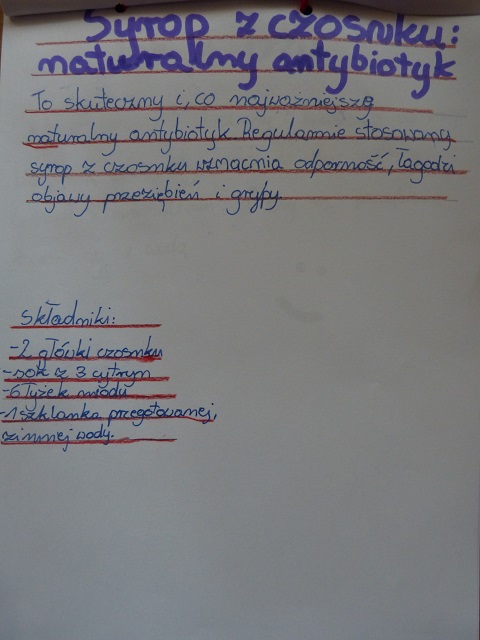 Syrop z czosnku:
naturalny antybiotyk
To skuteczny i, co najważniejsze
naturalny antybiotyk. Regularnie stosowany
syrop z czosnku wzmacnia odporność, łagodzi
objawy przeziębień i grypy.
Składniki:
-2 główki czosnku
-sok z 3 cytryn
-6 łyżek miodu
-1 szklanka przegotowanej,
zimnej wody.